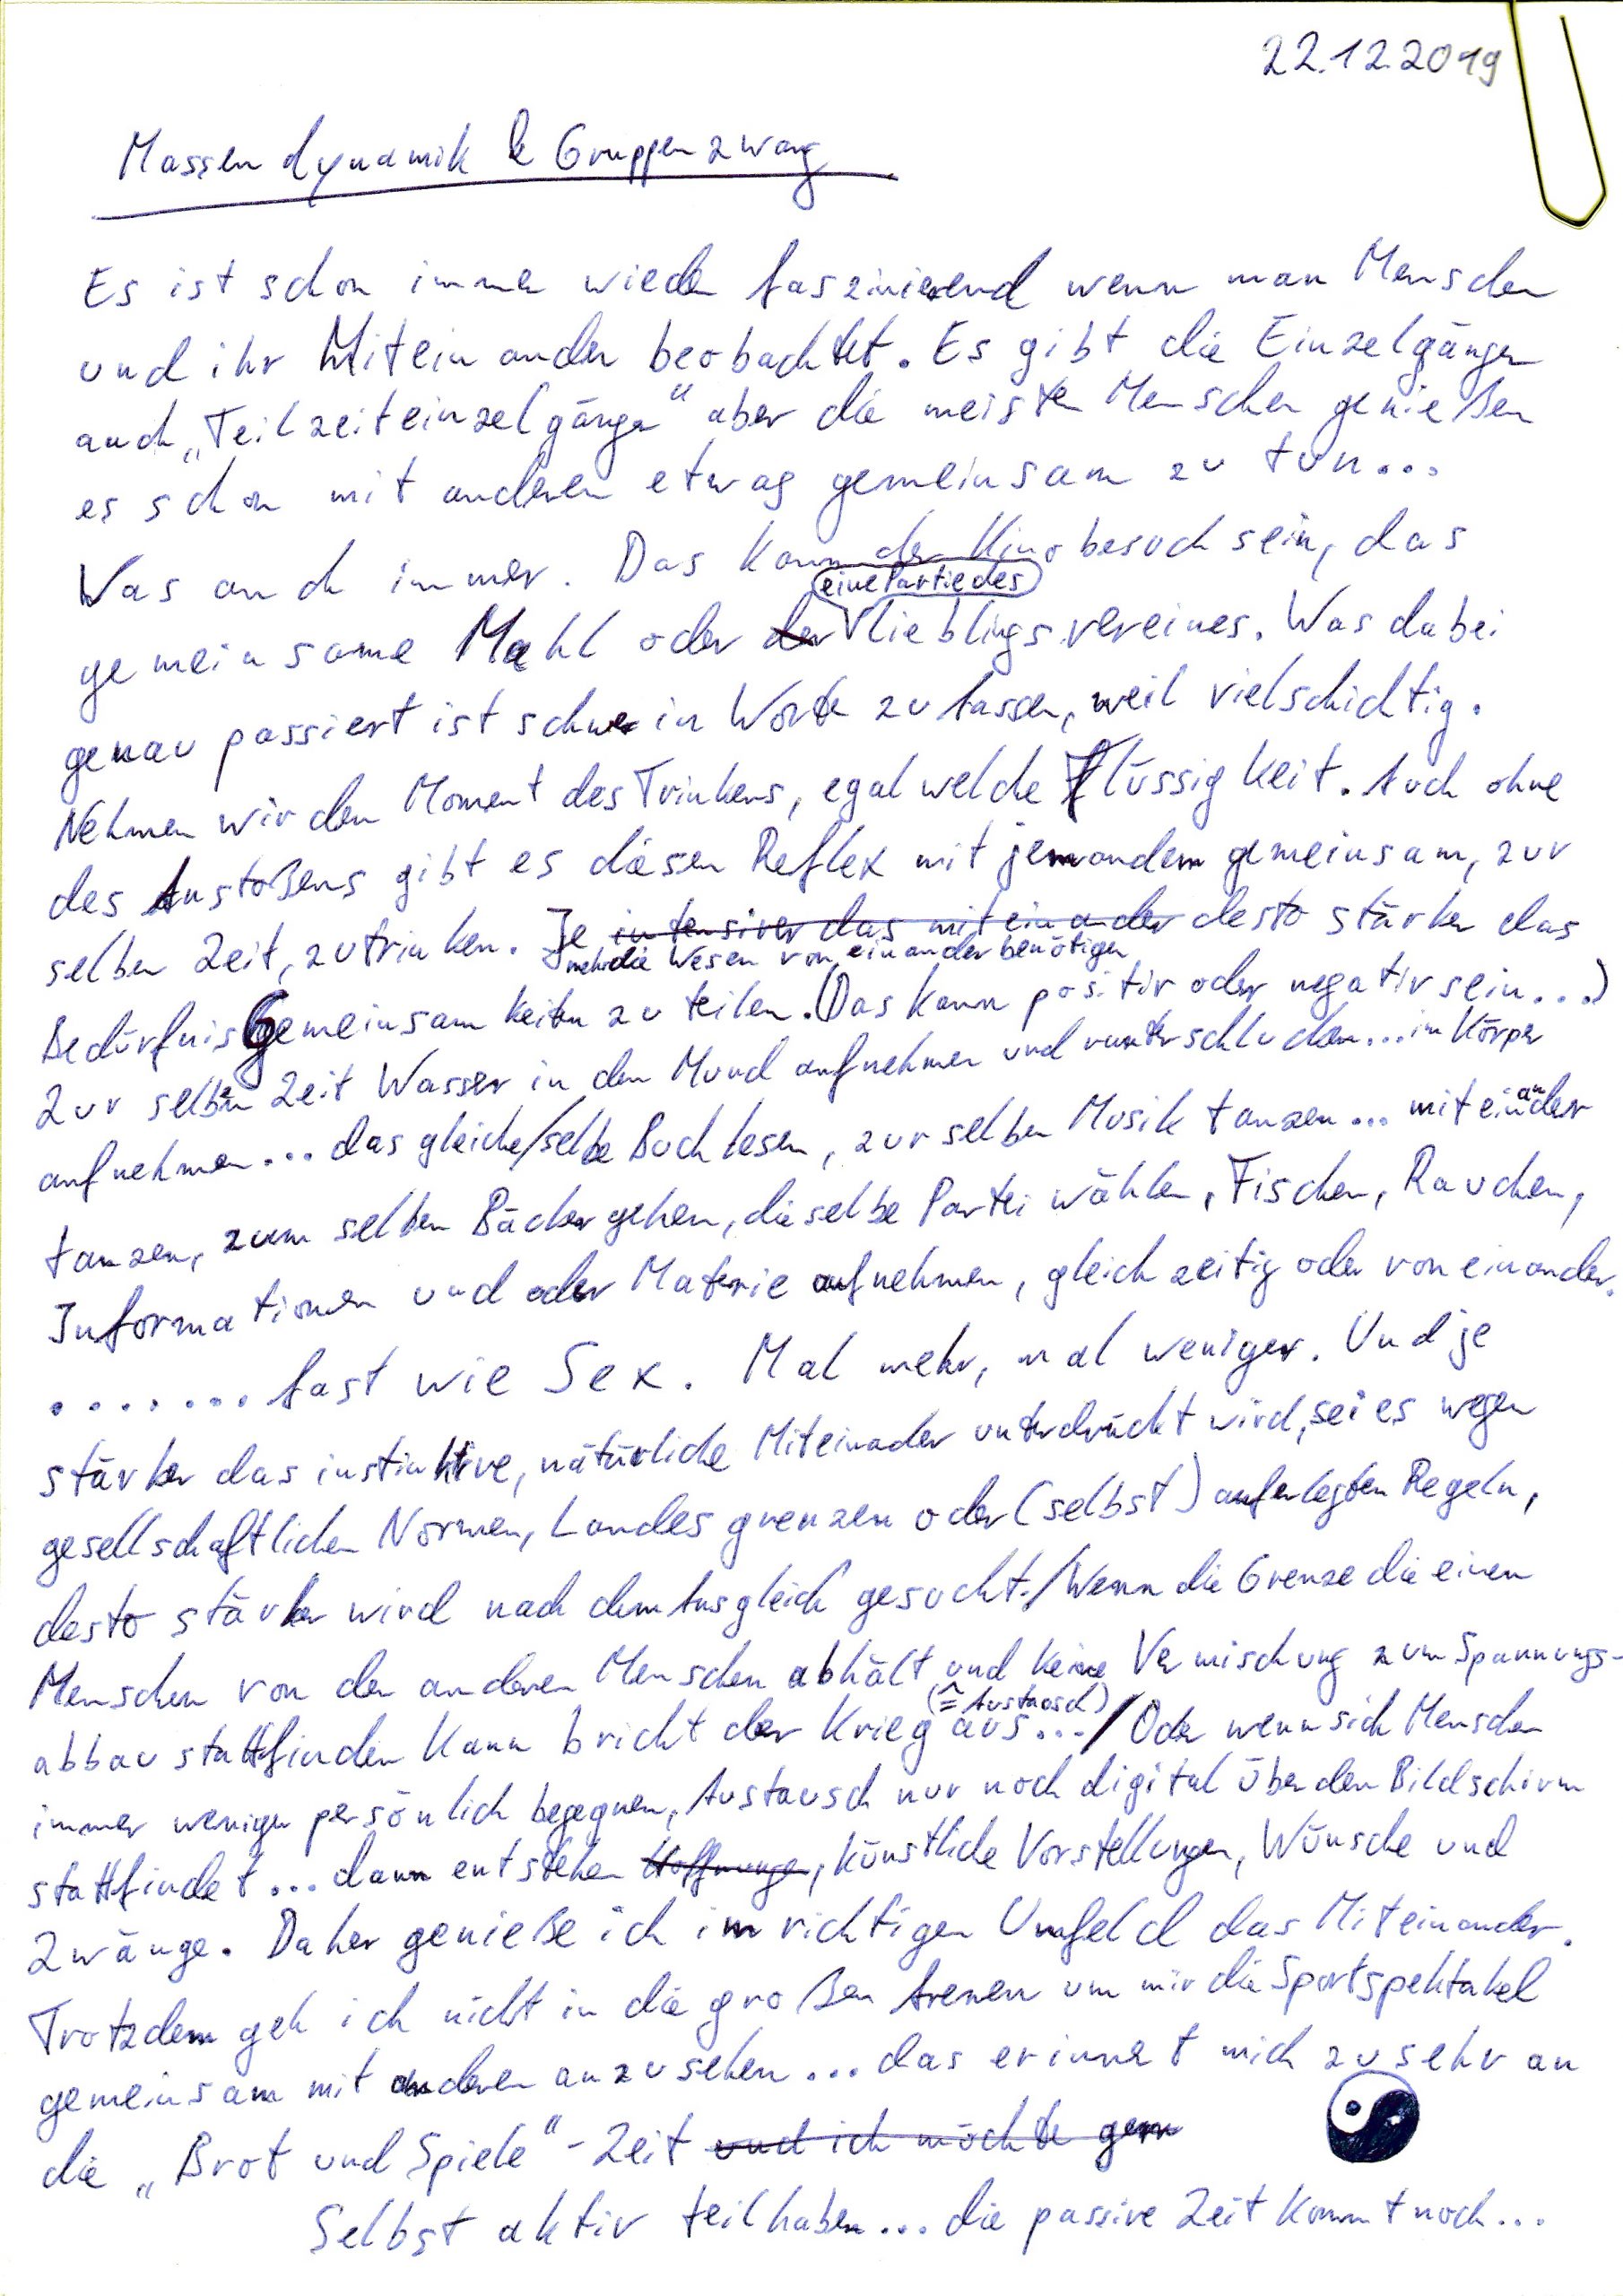 22.12.2019
Massendynamik & Gruppenzwang
Es ist schon immer wieder faszinierend wenn man Menschen
und ihr Miteinander beobachtet. Es gibt die Einzelgänger
auch „Teilzeiteinzelgänger“ aber die meisten Menschen genießen
es schon mit anderen etwas gemeinsam zu tun...
Was auch immer. Das kann der Kinobesuch sein, das
eine Partie des
gemeinsame Mahl oder der lieblingsvereines. Was dabei
genau passiert ist schwer in Worte zu fassen, weil vielschichtig.
Nehmen wir den Moment des Trinkens, egal welche Flüssigkeit. Auch ohne
des Anstoßens gibt es diesen Reflex mit jemandem gemeinsam, zur
selben Zeit, zu trinken. Je intensiver das miteinander desto stärker das
mehr die Wesen von einander benötigen
Bedürfnis Gemeinsamkeiten zu teilen. (Das kann positiv oder negativ sein...)
Zur selben Zeit Wasser in den Mund aufnehmen und runterschlucken... im Körper
aufnehmen... das gleiche/selbe Buch lesen, zur selben Musik tanzen... miteinander
tanzen, zum selben Bäcker gehen, die selbe Partei wählen, Fischen, Rauchen,
Informationen und oder Materie aufnehmen, gleichzeitig oder voneinander.
....... fast wie Sex. Mal mehr, mal weniger. Und je
stärker das instinktive, natürliche Miteinader unterdrückt wird, sei es wegen
gesellschaftlichen Normen, Landesgrenzen oder (selbst) auferlegten Regeln,
desto stärker wird nach dem Ausgleich gesucht./Wenn die Grenze die einen
Menschen von den anderen Menschen abhält und keine Vermischung zum Spannungs-
(≙ Austausch)
abbau stattfinden kann bricht der Krieg aus.../Oder wenn sich Menschen
immer weniger persönlich begegnen, Austausch nur noch digital über den Bildschirm
stattfindet... dann entstehen Hoffnungen, künstliche Vorstellungen, Wünsche und
Zwänge. Daher genieße ich im richtigen Umfeld das Miteinander.
Trotzdem geh ich nicht in die großen Arenen um mir die Sportspektakel
gemeinsam mit anderen anzusehen... das erinnert mich zu sehr an
die „Brot und Spiele“-Zeit und ich möchte gern
Selbst aktiv teilhaben... die passive Zeit kommt noch...